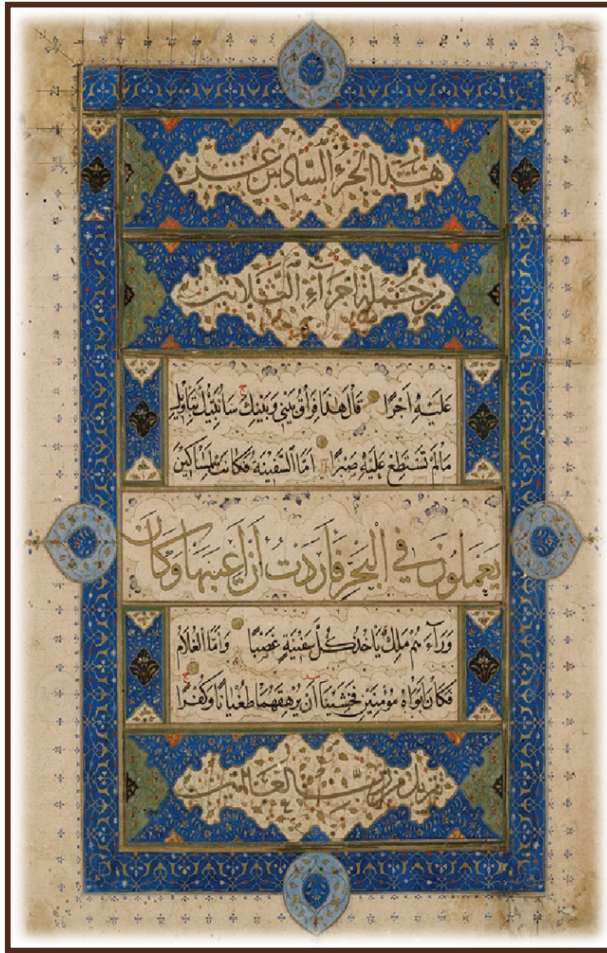 هذا الجزء السادس عشر
من جملة اجزآء الثلاثين
عَلَيْهِ اَجْرًا قَالَ هٰذَا فِرَاقُ بَيْنِي وَبَيْنِكَ سَاُنَبِّئُكَ بِتَأْوِيلِ
مَالَمْ تَسْتَطِعْ عَلَيْهِ صَبْرًا اَمَّا السَّفِينَةُ فَكَانَتْ لِمَسَاكِينَ
يَعْمَلُونَ فِي الْبَحْرِ فَاَرَدْتُ أَنْ اَعِيبَهَا وَكَانَ
وَرَآءَهُمْ مَلِكٌ يَاْخُذُ كُلَّ سَفِينَةٍ غَصْبًا وَاَمَّا الْغُلَامُ
فَكَانَ اَبَوَاهُ مُؤْمِنَيْنِ فَخَشِينَا اَنْ يُرْهِقَهُمَا طُغْيَانًا وَكُفْرًا
تنزيل من رب العالمين